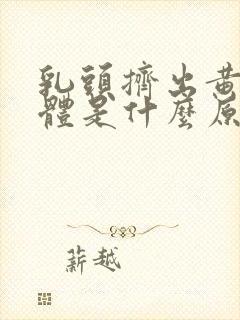 乳頭擠出黃
體是什麼原
薪越